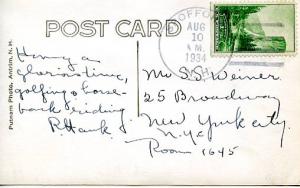 POST CARD
OFFO
AUG
10
A.M.
1934
N.H.
Putnam Photo, Antrim, N. H.
Having a
glorious time,
golfing & horse-
back riding
R. Hank
Mr S. S. Weiner
25 Broadway
New York city
N.Y.C
Room 1645